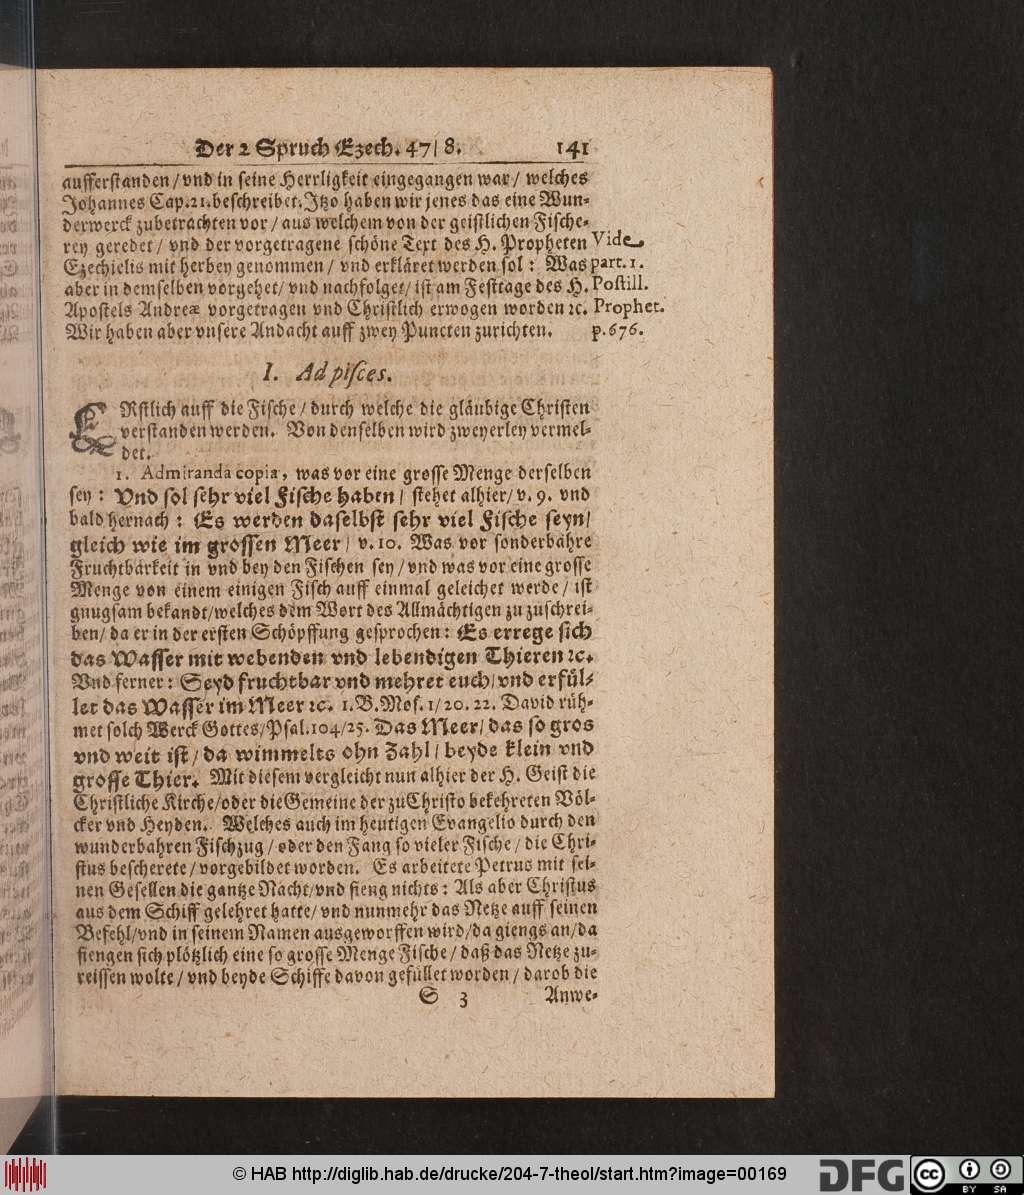 Der 2 Spruch Ezech. 47/ 8. 141
aufferstanden/ vnd in seine Herrligkeit eingegangen war/ welches
Johannes Cap. 21. beschreibet. Jtzo haben wir jenes das eine Wun-
derwerck zubetrachten vor/ aus welchem von der geistlichen Fische-
rey geredet/ vnd der vorgetragene schöne Text des H. Propheten
Ezechielis mit herbey genommen/ vnd erkläret werden sol: Was
aber in demselben vorgehet/ vnd nachfolget/ ist am Festtage des H.
Apostels Andreæ vorgetragen vnd Christlich erwogen worden ꝛc.
Wir haben aber vnsere Andacht auff zwey Puncten zurichten.
Vide
part. 1.
Postill.
Prophet.
p. 676.
I. Ad pisces.
ERstlich auff die Fische/ durch welche die gläubige Christen
verstanden werden. Von denselben wird zweyerley vermel-
det.
1. Admiranda copia, was vor eine grosse Menge derselben
sey: Vnd sol sehr viel Fische haben/ stehet alhier/ v. 9. vnd
bald hernach: Es werden daselbst sehr viel Fische seyn/
gleich wie im grossen Meer/ v. 10. Was vor sonderbahre
Fruchtbarkeit in vnd bey den Fischen sey/ vnd was vor eine grosse
Menge von einem einigen Fisch auff einmal geleichet werde/ ist
gnugsam bekandt/ welches dem Wort des Allmächtigen zu zuschrei-
ben/ da er in der ersten Schöpffung gesprochen: Es errege sich
das Wasser mit webenden vnd lebendigen Thieren ꝛc.
Vnd ferner: Seyd fruchtbar vnd mehret euch/ vnd erfül-
let das Wasser im Meer ꝛc. 1. B. Mos. 1/ 20. 22. David rüh-
met solch Werck Gottes/ Psal. 104/ 25. Das Meer/ das so gros
vnd weit ist/ da wimmelts ohn Zahl/ beyde klein vnd
grosse Thier. Mit diesem vergleicht nun alhier der H. Geist die
Christliche Kirche/ oder die Gemeine der zu Christo bekehreten Völ-
cker vnd Heyden. Welches auch im heutigen Evangelio durch den
wunderbahren Fischzug/ oder den Fang so vieler Fische/ die Chri-
stus bescherete/ vorgebildet worden. Es arbeitete Petrus mit sei-
nen Gesellen die gantze Nacht/ vnd fieng nichts: Als aber Christus
aus dem Schiff gelehret hatte/ vnd nunmehr das Netze auff seinen
Befehl/ vnd in seinem Namen ausgeworffen wird/ da giengs an/ da
fiengen sich plötzlich eine so grosse Menge Fische/ daß das Netze zu-
reissen wolte/ vnd beyde Schiffe davon gefüllet worden/ darob die
S 3 Anwe-
© HAB http://diglib.hab.de/drucke/204-7-theol/start.htm?image=00169
DFG
cc BY SA